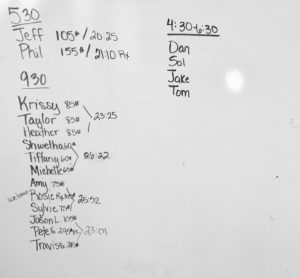 530
Jeff 105# / 20:25
Phil 155# / 21:10 Rx
930
Krissy 85#
Taylor 85# 23:25
Heather 85#
Shwetha 60#
Tiffany 60# 26:22
Michelle 65#
Amy 75#
welcome Rosie 26:52
Sylvie 75#
Jason L. 105#
Pete 23:01
Travis
4:30-6:30
Dan
Sol
Jake
Tom